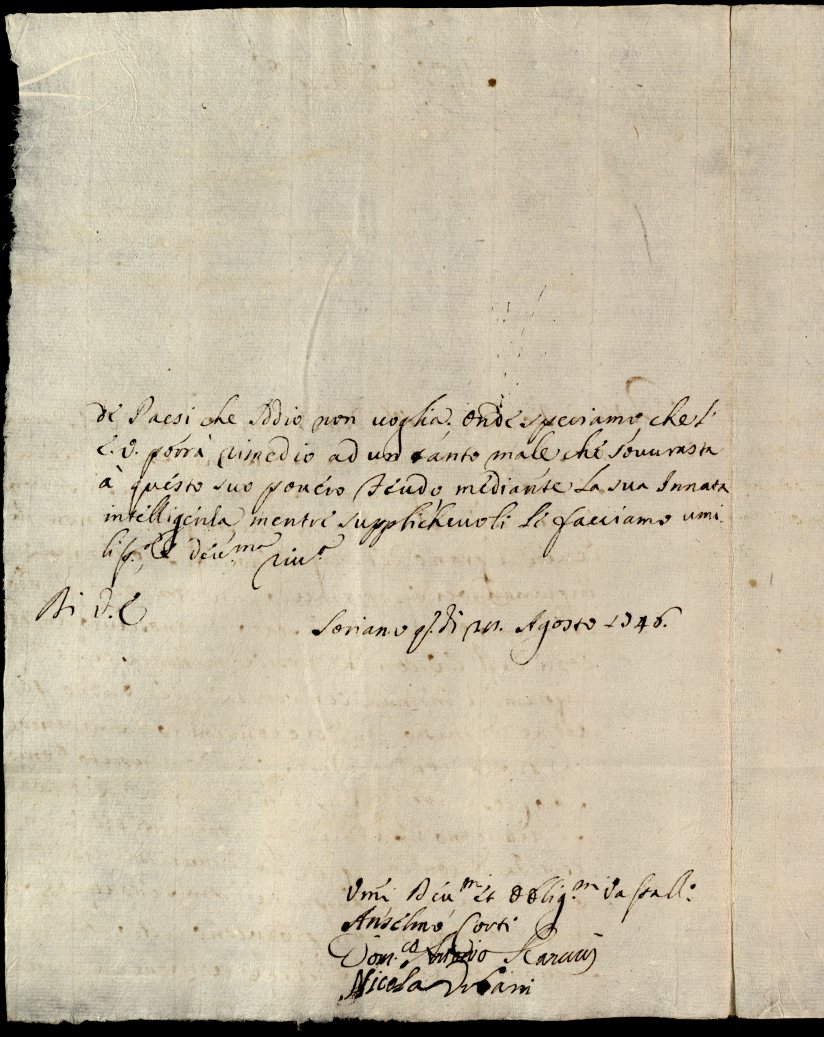 de Paesi che Iddio non voglia. Onde speriamo che l'
E. V. porrà rimedio ad un tanto male che sovvrasta
à questo suo povero Feudo mediante la sua Innata
intelligenza, mentre supplichevoli le facciamo umi
liss.ª e dev.ma riv.ª
Di V. E
Soriano q. dì Agosto 1746.
Umi Dev.mi et Oblig.mi Vassalli
Anselmo Corti
Dom.co
Nicola Urbani